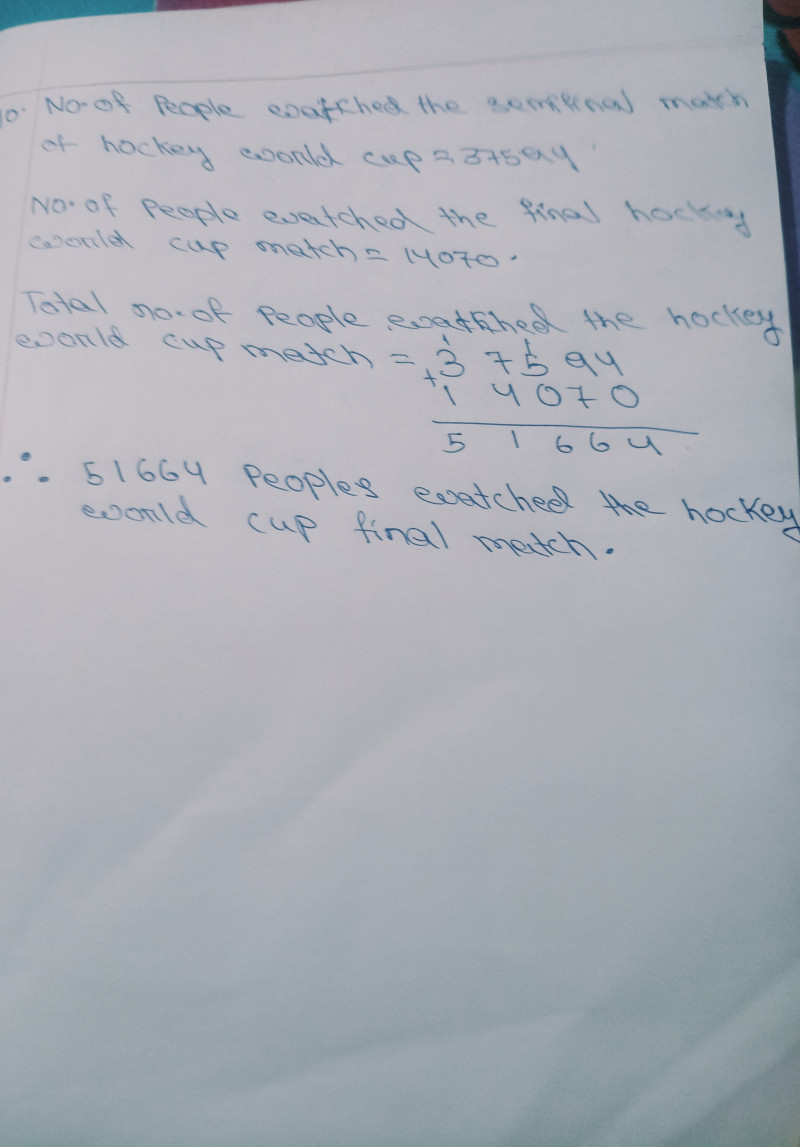 10. No. of People watched the semifinal match
of hockey world cup = 37594
No. of People watched the final hockey
world cup match = 14070.
Total no. of People watched the hockey
world cup match = 3 7 5 9 4
+ 1 4 0 7 0
5 1 6 6 4
∴ 51664 Peoples watched the hockey
world cup final match.